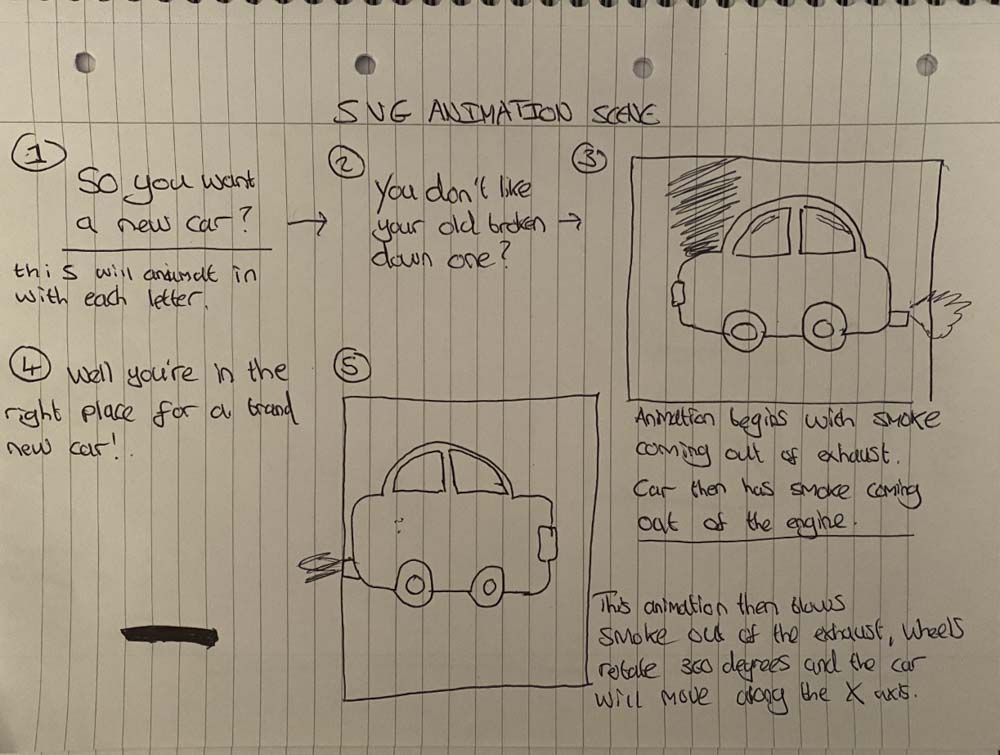 SVG ANIMATION SCENE
1
So you want
a new car?
this will animat in
with each letter.
2
You don't like
your old broken
down one?
3
Animation begins with smoke
coming out of exhaust.
Car then has smoke coming
out of the engine.
4 Well you're in the
right place for a brand
new car!.
5
This animation then blows
smoke out of the exhaust, wheels
rotate 360 degrees and the car
will move along the X axis.